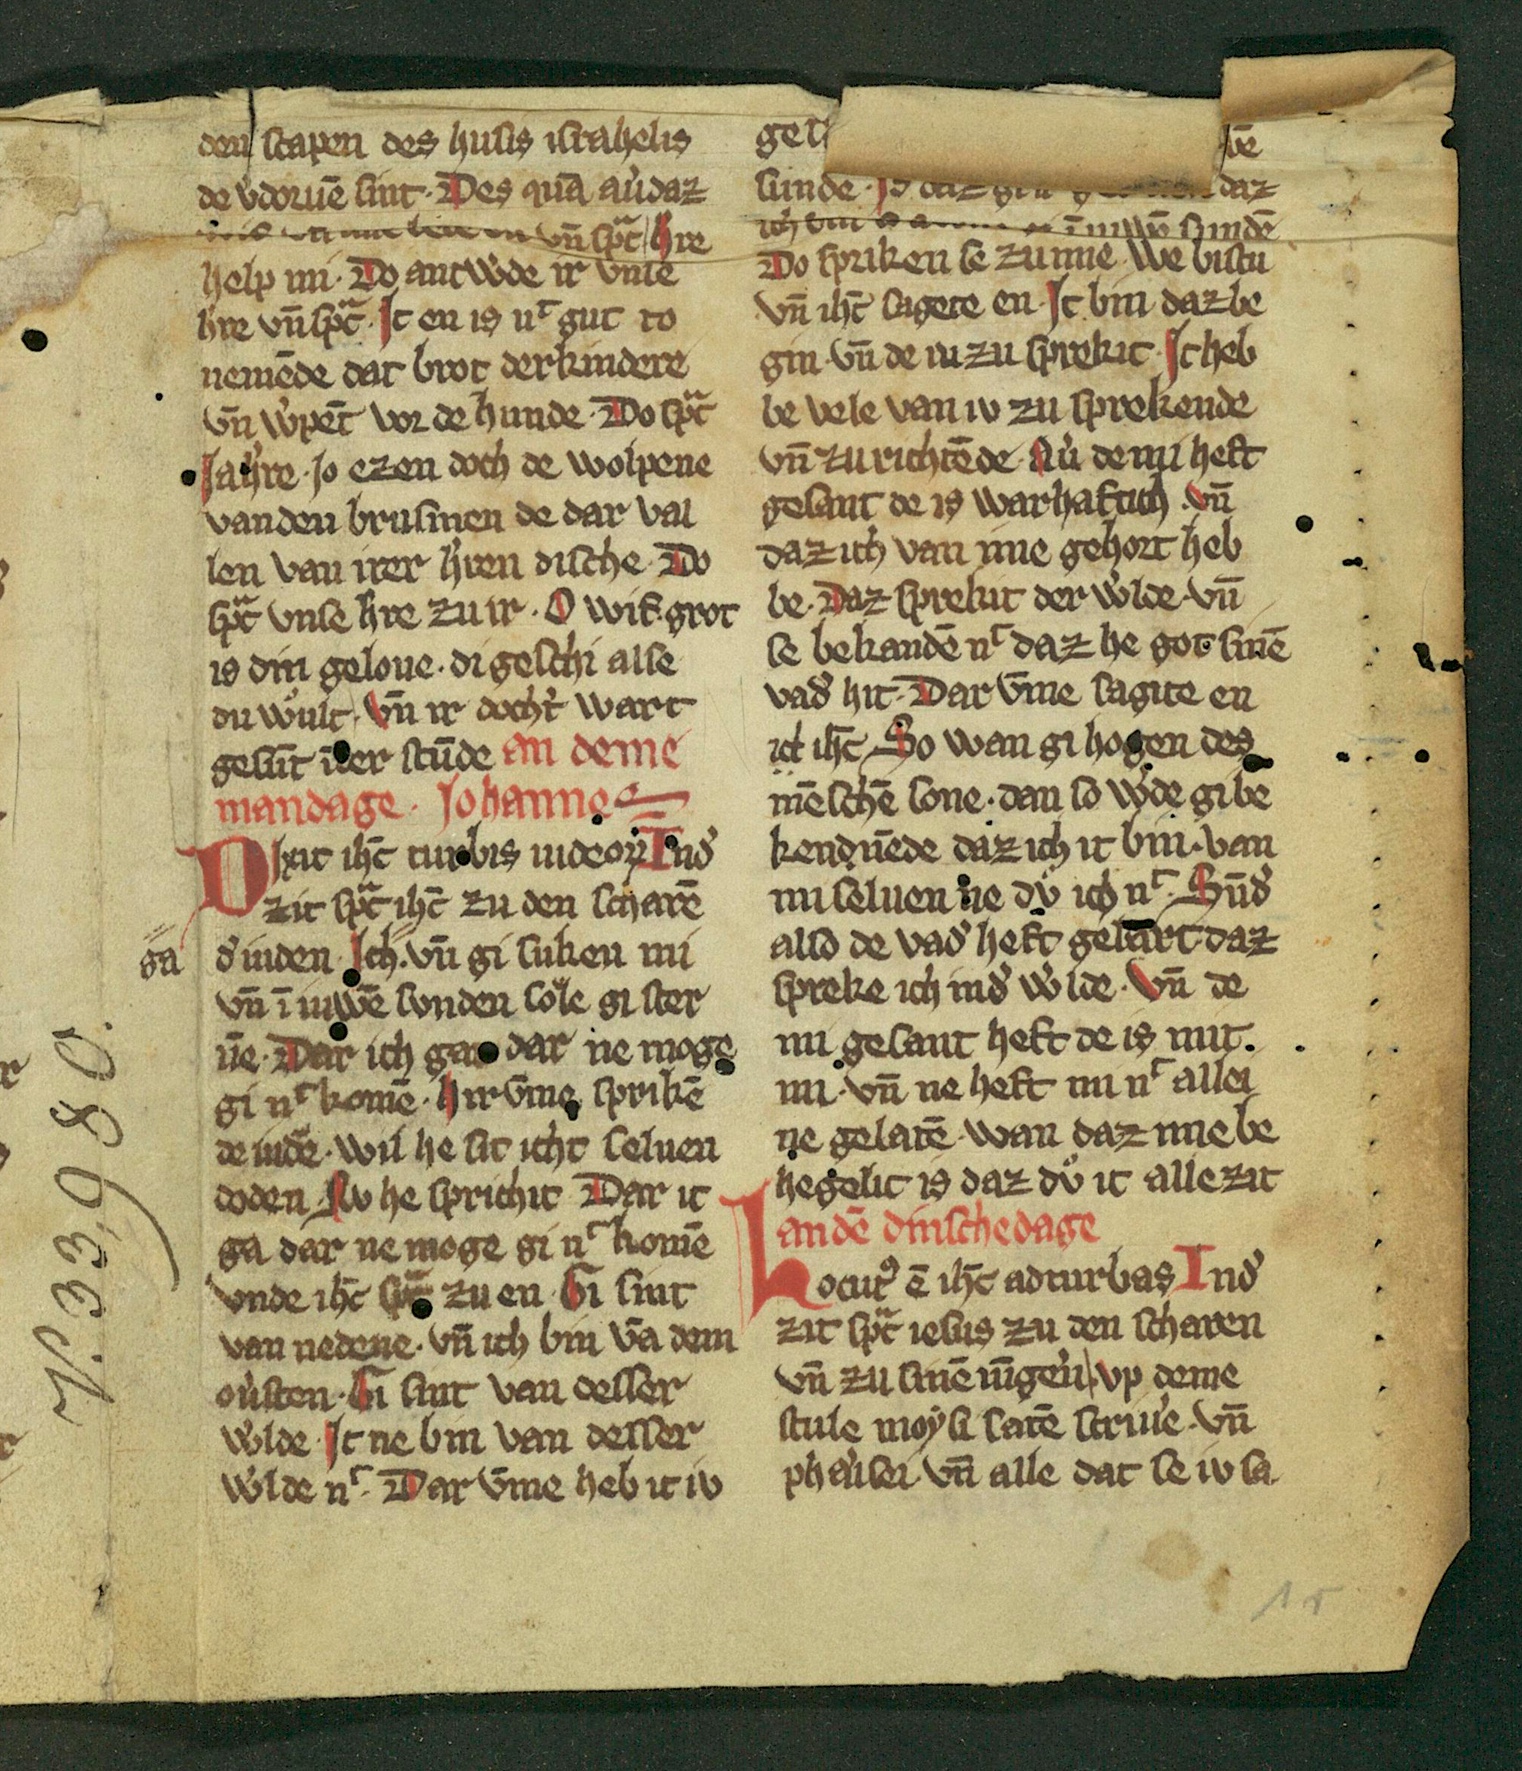 den scapen des husis israhelis
de v̓doruē sint. Des quā au̓ daz
vn̄ sp̄ᵃc hre
help mi. Do antw̓de ir vnse
hre vn̄ sp̄ᵃc. Jt en is nͭ gut to
nemēde dat brot der kindere
vn̄ w̓pēt vor de hunde. Do sp̄ᵃc
Ja h̓re. Jo ezen doch de wolpene
van den brusmen de dar val
len van irer h̓ren dische. Do
sp̄ᵃc vnse hre zu ir. O wif. grot
is din geloue. di geschi alse
du wͦlt. Vn̄ ir docht̓ wart
gesūt ū̓er stūde an deme
mandage. Johannes
Dixit ih̄c turbis iudeoꝝ Jnd̓
zit sp̄ᵃc ih̄c zu den scharē
gā
d̓ iuden. Jch. vn̄ gi suken mi
vn̄ ī iuwē sunden sole gi ster
ūe. Dar ich ga dar ne moge
gi nͭ komē. hir v̄me sprikē
de iudē. wil he sic icht seluen
doden. Nv he sprichit Dar ic
ga dar ne moge gi nͭ komē
vnde ih̄c zu en. Gi sint
van nedene. vn̄ ich bin vā dem
ou̓sten. Gi sint van desser
w̓lde. Jc ne bin van desser
w̓lde nͭ. Dar v̄me heb ic iv
sunde. daz
ich bin ī iuwē sundē
Do spriken se zu ime. We bistu
vn̄ ih̄c sagete en. Jc bin daz be
gin. vn̄ de iu zu sprekit. Jc heb
be vele van iv zu sprekende
vn̄ zu richtēde. Au̓ de mi heft
gesant de is warhaftich. vn̄
daz ich van ime gehort heb
be. Daz sprekit der w̓lde. vn̄
se bekandē nͭ daz he got sinē
vad̓ hit. Dar v̄me sagite en
ict ih̄c So wan gi hogen des
mēschē sone. dan so w̓de gi be
kenenēde daz ich it bin. van
mi seluen ne dͦv ich nͭ. Sūd̓
also de vad̓ heft gelārt daz
spreke ich in d̓ w̓lde. Vn̄ de
mi gesant heft de is mit.
mi. vn̄ ne heft mi nͭ allei
ne gelatē. wan daz ime be
hegelic is daz dͦv ic alle zit
an dē dinschedage
Locutꝰ ē ih̄c ad turbas Jnd̓
zit sp̄ᵃc iesus zu den scharen
vn̄ zu sinē iūgeru̓ vp deme
stule moẏsi satē scriue̓. vn̄
phau̓sei. vn̄ alle dat se iv sa
V. 33,980.
15